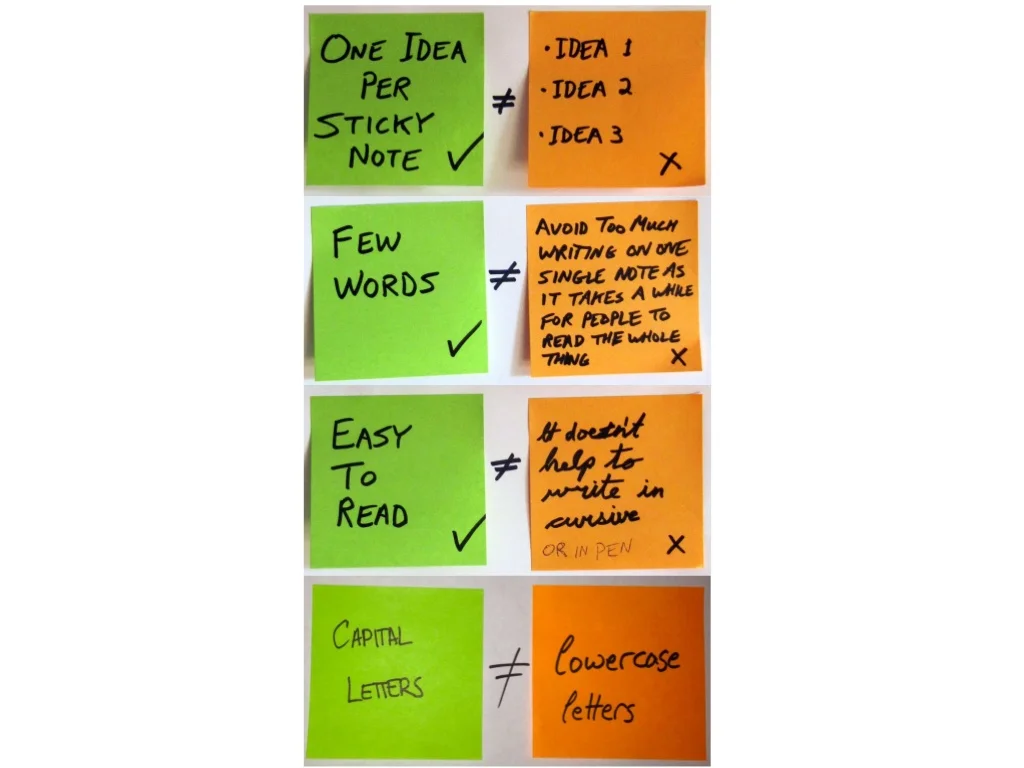 ONE IDEA
PER
STICKY
NOTE ✓
≠
• IDEA 1
• IDEA 2
• IDEA 3
X
FEW
WORDS
✓
≠
AVOID TOO MUCH
WRITING ON ONE
SINGLE NOTE AS
IT TAKES A WHILE
FOR PEOPLE TO
READ THE WHOLE
THING X
EASY
TO
READ
✓
≠
It doesn't
help to
write in
cursive
OR IN PEN X
CAPITAL
LETTERS
≠
lowercase
letters